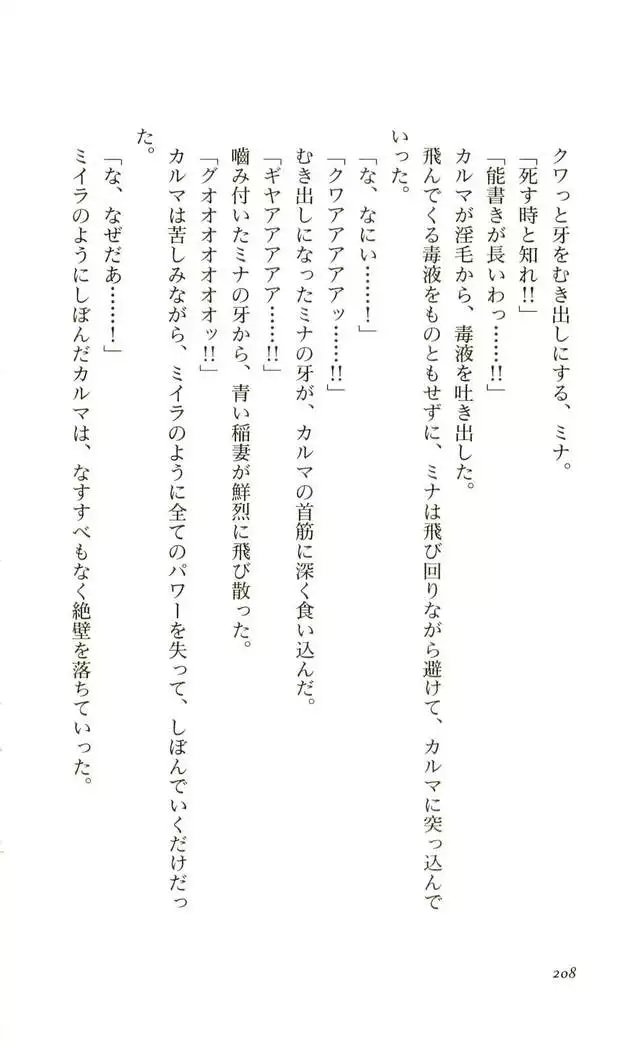 クワっと牙をむき出しにする、ミナ。
「死す時と知れ!!」
「能書きが長いわっ……!!」
カルマが淫毛から、毒液を吐き出した。
飛んでくる毒液をものともせずに、ミナは飛び回りながら避けて、カルマに突っ込んで
いった。
「な、なにい……!」
「クワアアアアアッ……!!」
むき出しになったミナの牙が、カルマの首筋に深く食い込んだ。
「ギヤアアアアア……!!」
嚙み付いたミナの牙から、青い稲妻が鮮烈に飛び散った。
「グオオオオオオオッ!!」
カルマは苦しみながら、ミイラのように全てのパワーを失って、しぼんでいくだけだっ
た。
「な、なぜだあ……!」
ミイラのようにしぼんだカルマは、なすすべもなく絶壁を落ちていった。
208